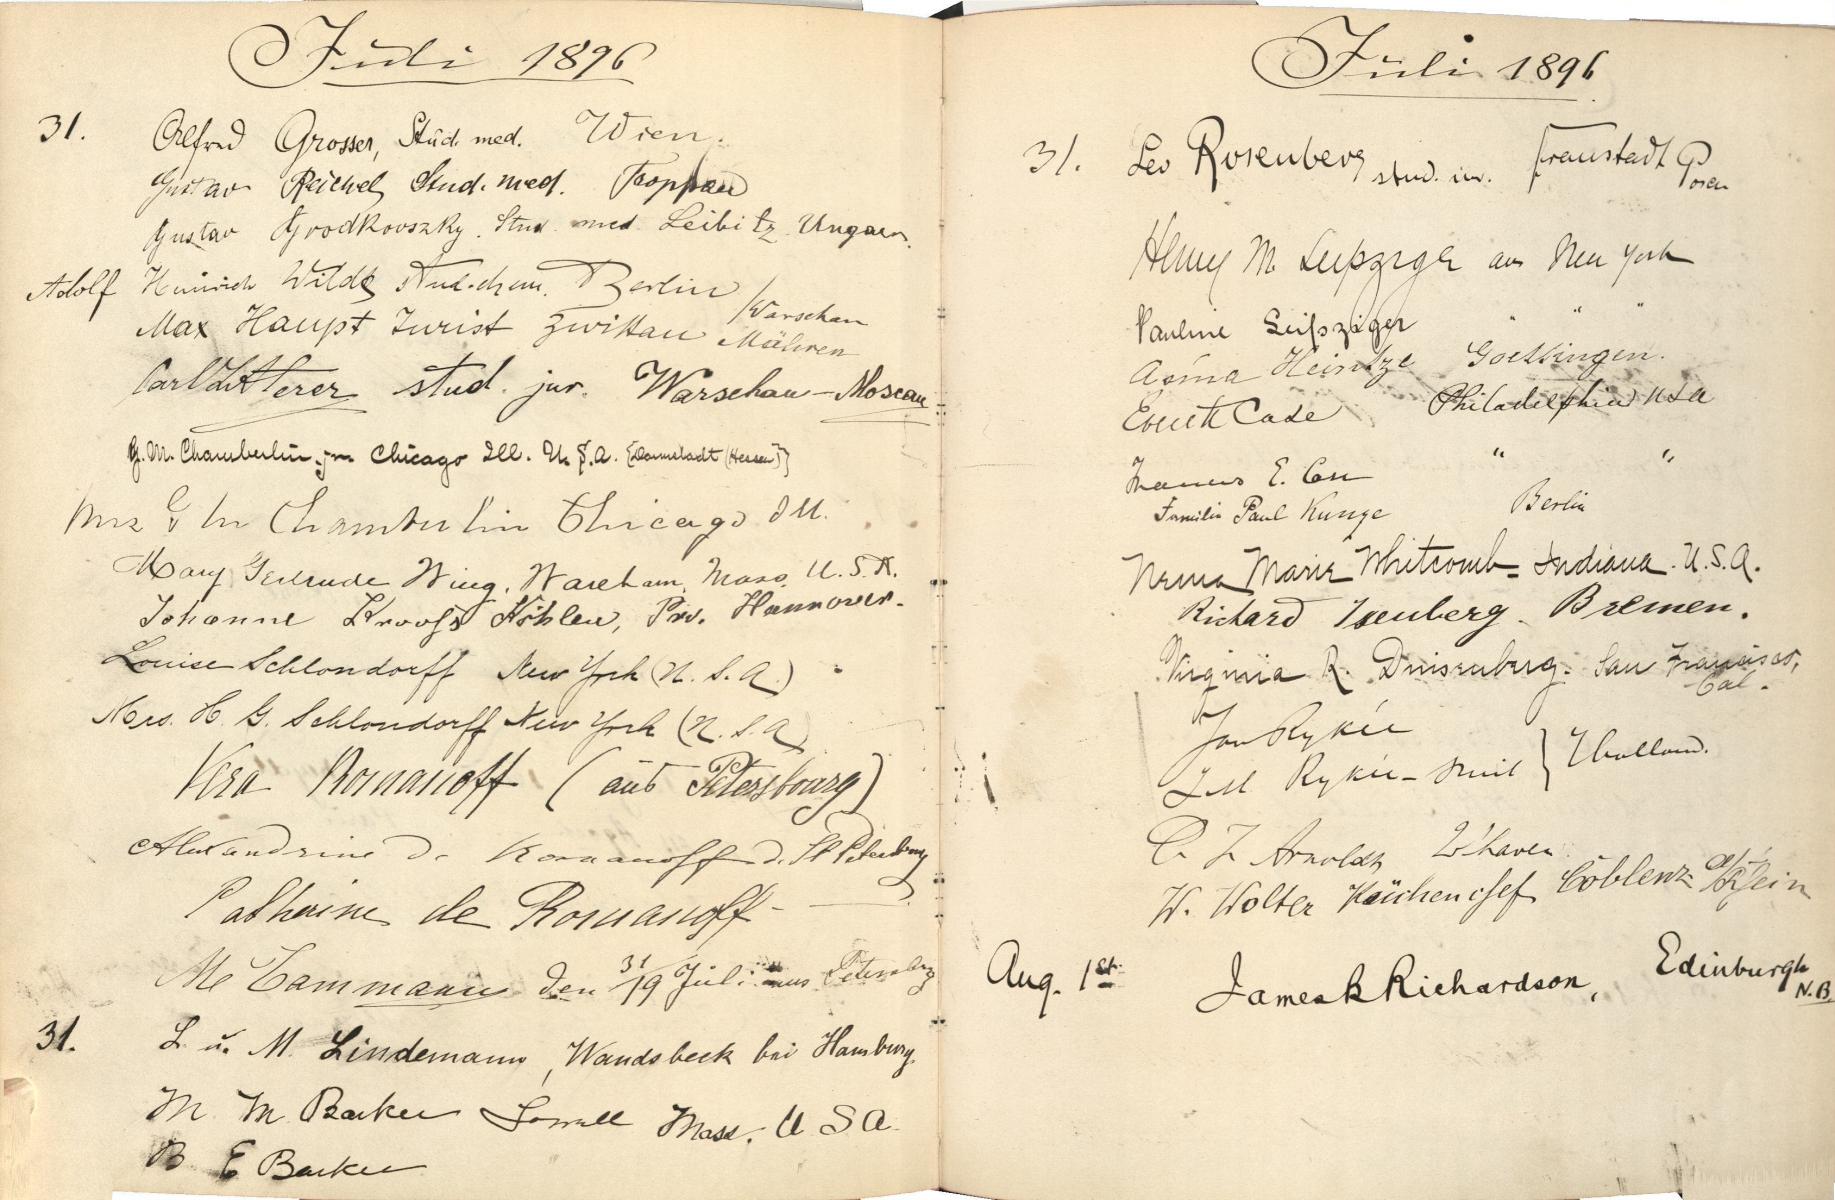 Juli 1896
31. Alfred Grosser, Stud. med. Wien.
Gustav Reichel Stud. med. Troppau
Gustav Grodkovszky. Stud. med. Leibitz Ungarn.
Adolf Heinrich Wildt stud. chem. Berlin / Warschau
Max Haupt Jurist Zwittau Mähren
Carl stud. jur. Warschau – Moscau
G. M. Chamberlin jr Chicago Ill. U. S. A. [Darmstadt (Hessen)]
Mrs G M Chamberlin Chicago Ill.
Mary Gertrude Wing, Wareham, Mass. U. S. A.
Johanne Prv. Hannover.
Louise Schlondorff New York (U. S. A.)
Mrs. H. G. Schlondorff New York (U. S. A)
Vera Romanoff (aus Petersbourg)
Alexandrine d. Romanoff d. St Petersburg
Catherine de Romanoff –
Me den 31/19 Juli aus Petersburg
31. L. u. M. Lindemann, Wandsbeck bei Hamburg
M M Barker Lowell Mass. U S A.
B E Barker
Juli 1896
31. Leo Rosenberg stud. Fraustadt Posen
Henry M Leipziger aus New York
Pauline Leipziger " "
Heintze Goettingen.
Everett Cade Philadelphia USA
E. " "
Familie Paul Kunze Berlin
Marie Whitcomb – Indiana. U. S. A.
Richard Isenberg. Bremen.
Virginia R. Duisenberg. San Francisco,
Cal.
Jan Rykée
Rykée – } Holland.
Arnoldt W'haven
W. Wolter Küchenchef Coblenz a/Rhein
Aug. 1st. James R Richardson, Edinburgh
N.B.